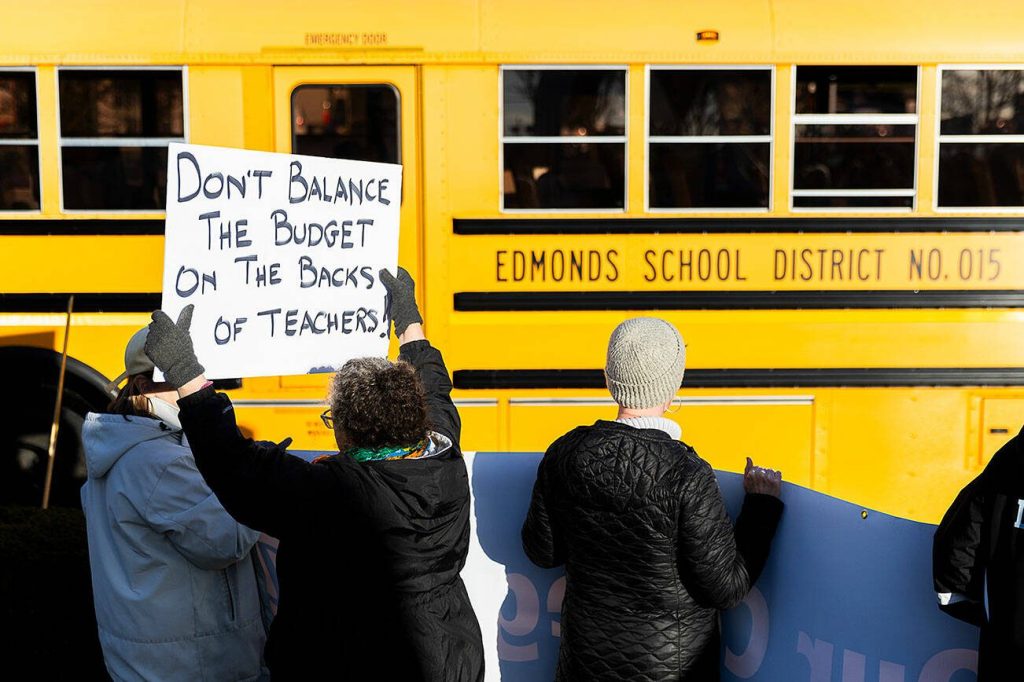 EMERGENCY DOOR
DON'T BALANCE
THE BUDGET
ON THE BACKS
OF TEACHERS!
EDMONDS SCHOOL DISTRICT NO. 015